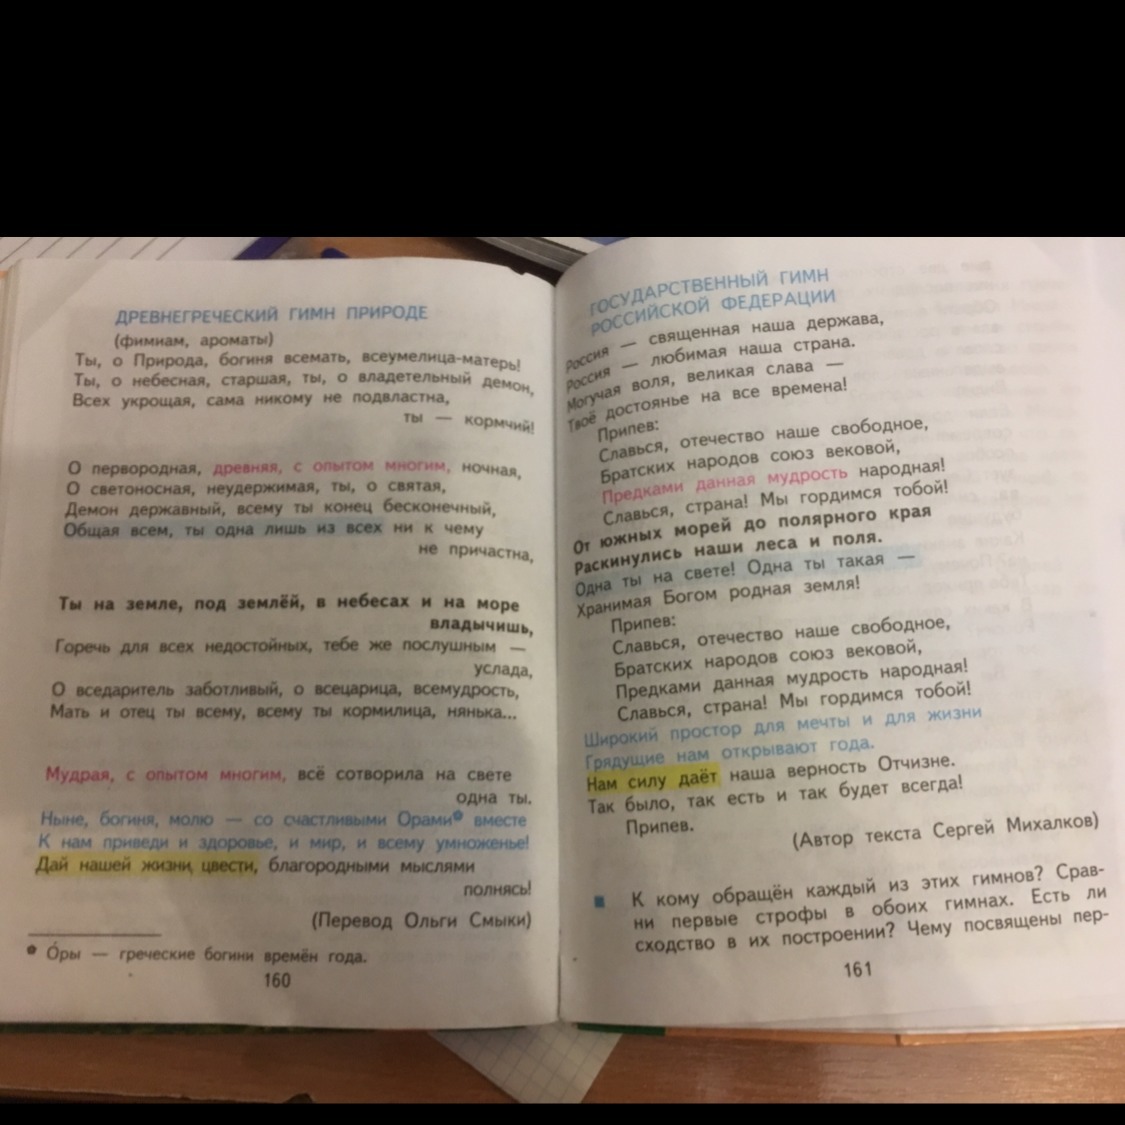 ДРЕВНЕГРЕЧЕСКИЙ ГИМН ПРИРОДЕ
(фимиам, ароматы)
Ты, о Природа, богиня всемать, всеумелица-матерь!
Ты, о небесная, старшая, ты, о владетельный демон,
Всех укрощая, сама никому не подвластна,
ты — кормчий!
О первородная, древняя, с опытом многим, ночная,
О светоносная, неудержимая, ты, о святая,
Демон державный, всему ты конец бесконечный,
Общая всем, ты одна лишь из всех ни к чему
не причастна,
Ты на земле, под землёй, в небесах и на море
владычишь,
Горечь для всех недостойных, тебе же послушным —
услада,
О вседаритель заботливый, о всецарица, всемудрость,
Мать и отец ты всему, всему ты кормилица, нянька...
Мудрая, с опытом многим, всё сотворила на свете
одна ты.
Ныне, богиня, молю — со счастливыми Орами* вместе
К нам приведи и здоровье, и мир, и всему умноженье!
Дай нашей жизни цвести, благородными мыслями
полнясь!
(Перевод Ольги Смыки)
* О́ры — греческие богини времён года.
160
ГОСУДАРСТВЕННЫЙ ГИМН
РОССИЙСКОЙ ФЕДЕРАЦИИ
Россия — священная наша держава,
Россия — любимая наша страна.
Могучая воля, великая слава —
Твоё достоянье на все времена!
Припев:
Славься, отечество наше свободное,
Братских народов союз вековой,
Предками данная мудрость народная!
Славься, страна! Мы гордимся тобой!
От южных морей до полярного края
Раскинулись наши леса и поля.
Одна ты на свете! Одна ты такая —
Хранимая Богом родная земля!
Припев:
Славься, отечество наше свободное,
Братских народов союз вековой,
Предками данная мудрость народная!
Славься, страна! Мы гордимся тобой!
Широкий простор для мечты и для жизни
Грядущие нам открывают года.
Нам силу даёт наша верность Отчизне.
Так было, так есть и так будет всегда!
Припев.
(Автор текста Сергей Михалков)
К кому обращён каждый из этих гимнов? Срав-
ни первые строфы в обоих гимнах. Есть ли
сходство в их построении? Чему посвящены пер-
161